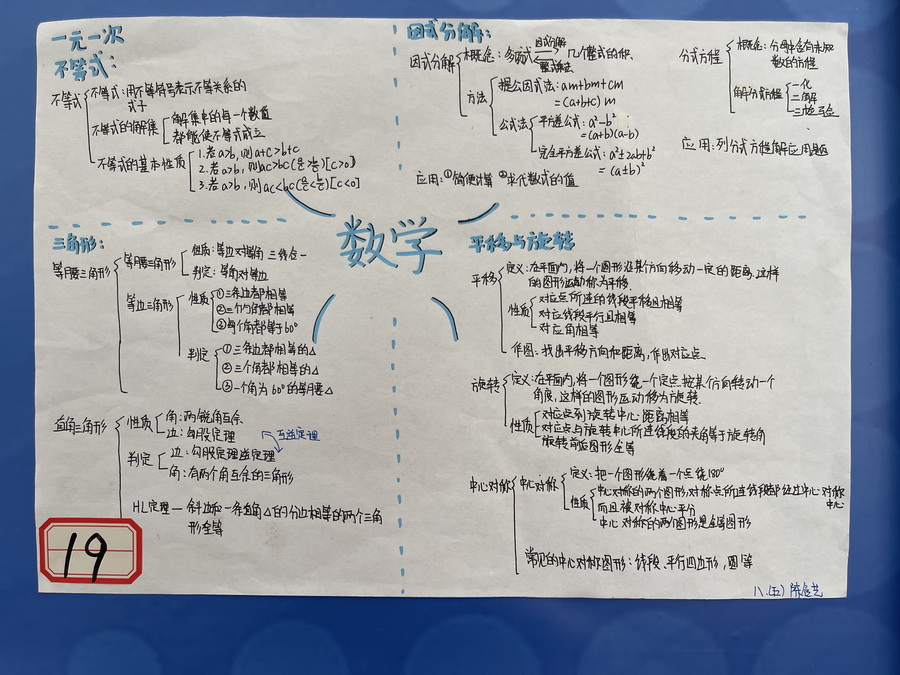 一元一次
不等式：
不等式
不等式：用不等符号表示不等关系的
式子
不等式的解集
解集中的每一个数值
都能使不等式成立
不等式的基本性质
1.若a>b,则a+c>b+c
2.若a>b,则ac>bc(a/c>b/c)[c>0]
3.若a>b,则ac<bc(a/c<b/c)[c<0]
因式分解：
因式分解
概念：多项式 因式分解 几个整式的积.
整式乘法
方法
提公因式法：am+bm+cm
=(a+b+c)m
公式法
平方差公式：a²-b²
=(a+b)(a-b)
完全平方公式：a²±2ab+b²
=(a±b)²
应用：①简便计算 ②求代数式的值
分式方程
概念：分母中含有未知
数的方程
解分式方程
一化
二解
三检验
应用：列分式方程解应用题
数学
三角形：
等腰三角形
等腰三角形
性质：等边对等角 三线合一
判定：等角对等边
等边三角形
性质
①三条边都相等
②三个角都相等
③每个角都等于60°
判定
①三条边都相等的△
②三个角都相等的△
③一个角为60°的等腰△
直角三角形
性质
角：两锐角互余
边：勾股定理
互逆定理
判定
边：勾股定理逆定理
角：有两个角互余的三角形
HL定理—斜边和一条直角△的分边相等的两个三角
形全等
平移与旋转
平移
定义：在平面内,将一个图形沿某个方向移动一定的距离,这样
的图形运动称为平移.
性质
对应点所连的线段平移且相等
对应线段平行且相等
对应角相等
作图：找出平移方向和距离,作出对应点.
旋转
定义：在平面内,将一个图形绕一个定点按某个方向转动一个
角度,这样的图形运动称为旋转.
性质
对应点到旋转中心距离相等
对应点与旋转中心所连线段的夹角等于旋转角
旋转前后图形全等
中心对称
中心对称
定义：把一个图形绕着一个点绕180°
性质
中心对称的两个图形,对称点所连线段都经过中心对称
中心
而且被对称中心平分
中心对称的两个图形是全等图形
常见的中心对称图形：线段、平行四边形，圆等
19
八.(五)陈